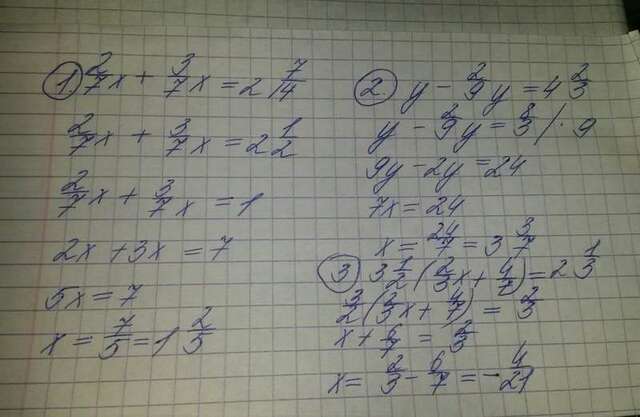 ① 2/7 x + 3/7 x = 2 7/14
2/7 x + 3/7 x = 2 1/2
2/7 x + 3/7 x = 1
2x + 3x = 7
5x = 7
x = 7/5 = 1 2/5
② y - 2/9 y = 4 2/3
y - 2/9 y = 8/3 / · 9
9y - 2y = 24
7x = 24
x = 24/7 = 3 3/7
③ 3 1/2 (2/3 x + 4/7) = 2 1/3
3/2 (2/3 x + 4/7) = 2/3
x + 6/7 = 2/3
x = 2/3 - 6/7 = - 4/21